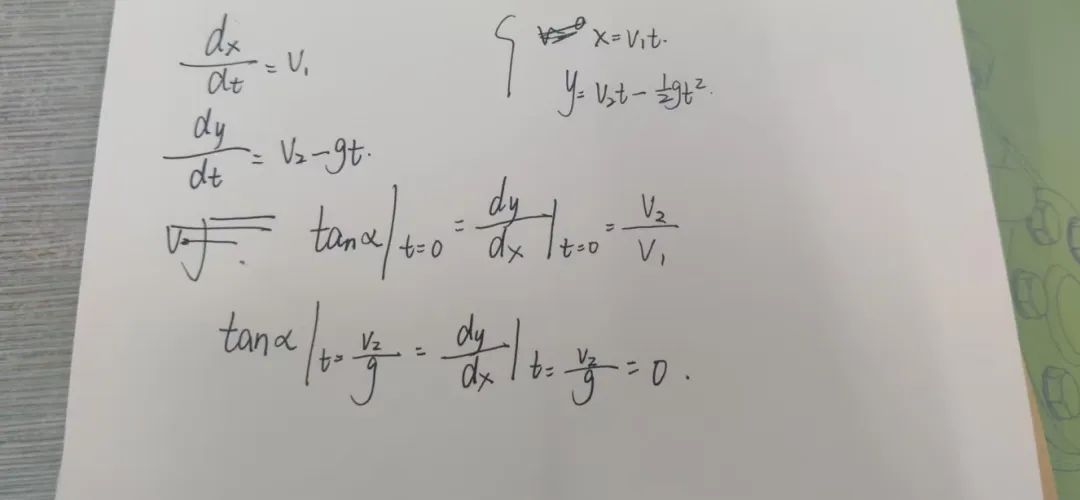 dx/dt = V₁
x = V₁t.
y = V₂t - ½gt².
dy/dt = V₂ - gt.
tanα|t=0 = dy/dx|t=0 = V₂/V₁
tanα|t=V₂/g = dy/dx|t=V₂/g = 0.